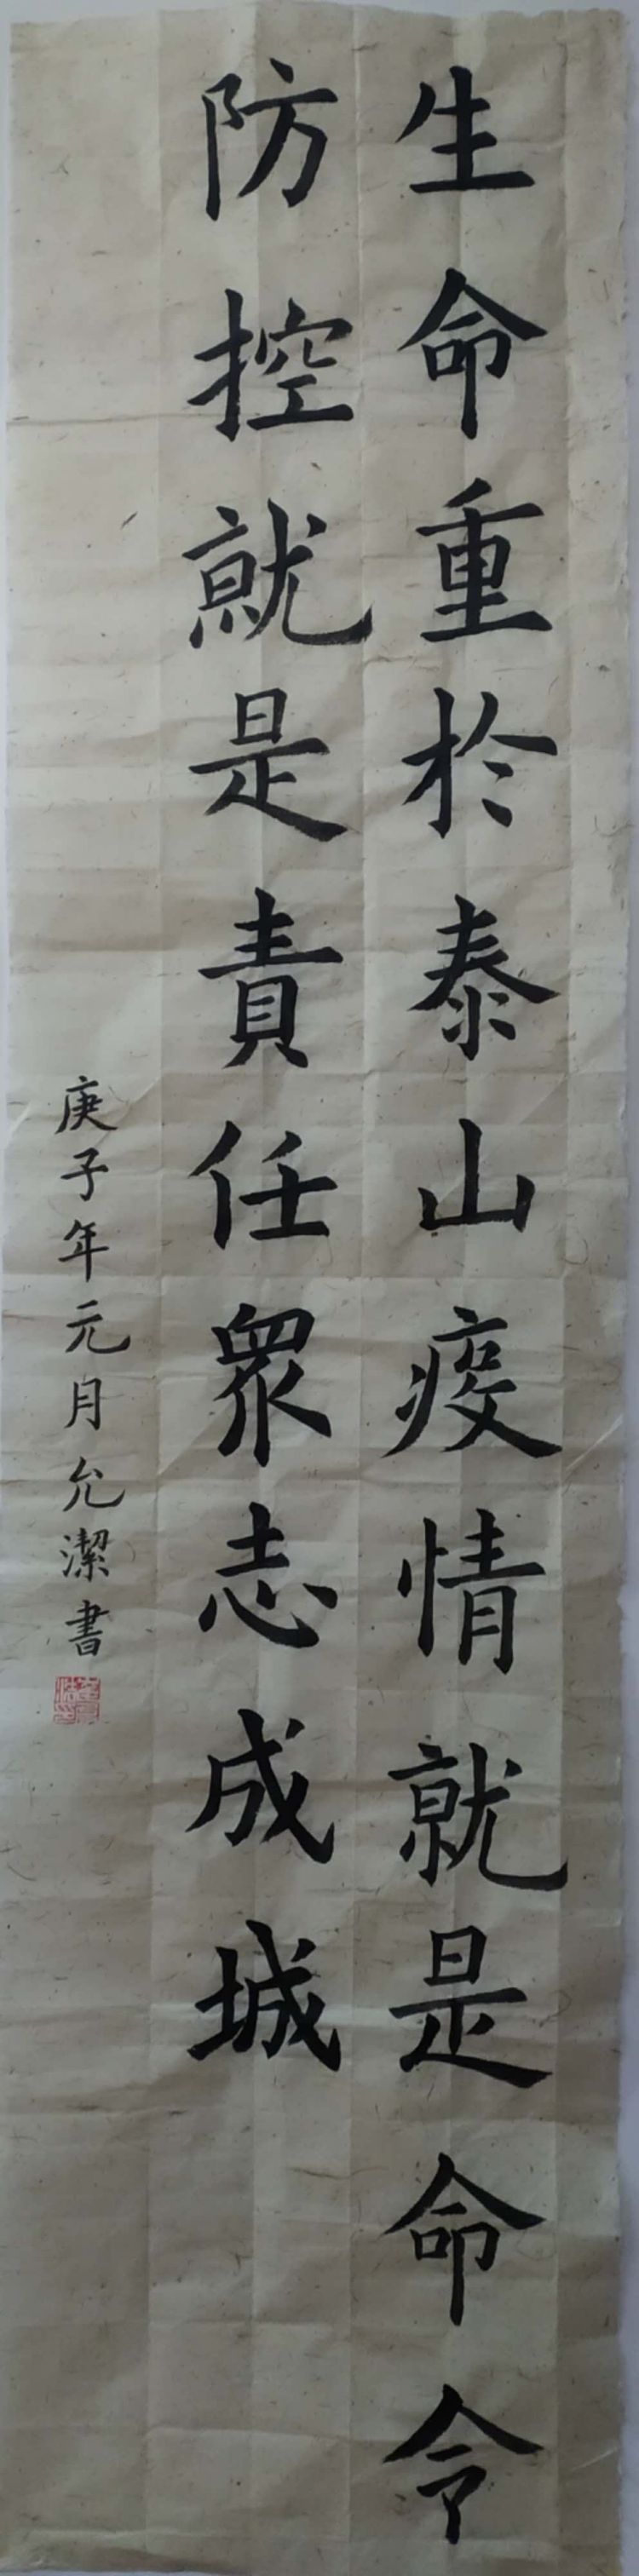 生命重於泰山疫情就是命令
防控就是責任眾志成城
庚子年元月允潔書